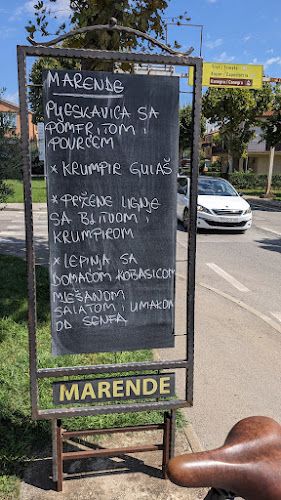 MARENDE
PLJESKAVICA SA
POMFRITOM I
POVRĆEM
* KRUMPIR GULAŠ
* PRŽENE LIGNJE
SA BLITVOM I
KRUMPIROM
* LEPINJA SA
DOMAĆOM KOBASICOM
MJEŠANOM
SALATOM I UMAKOM
OD SENFA
MARENDE